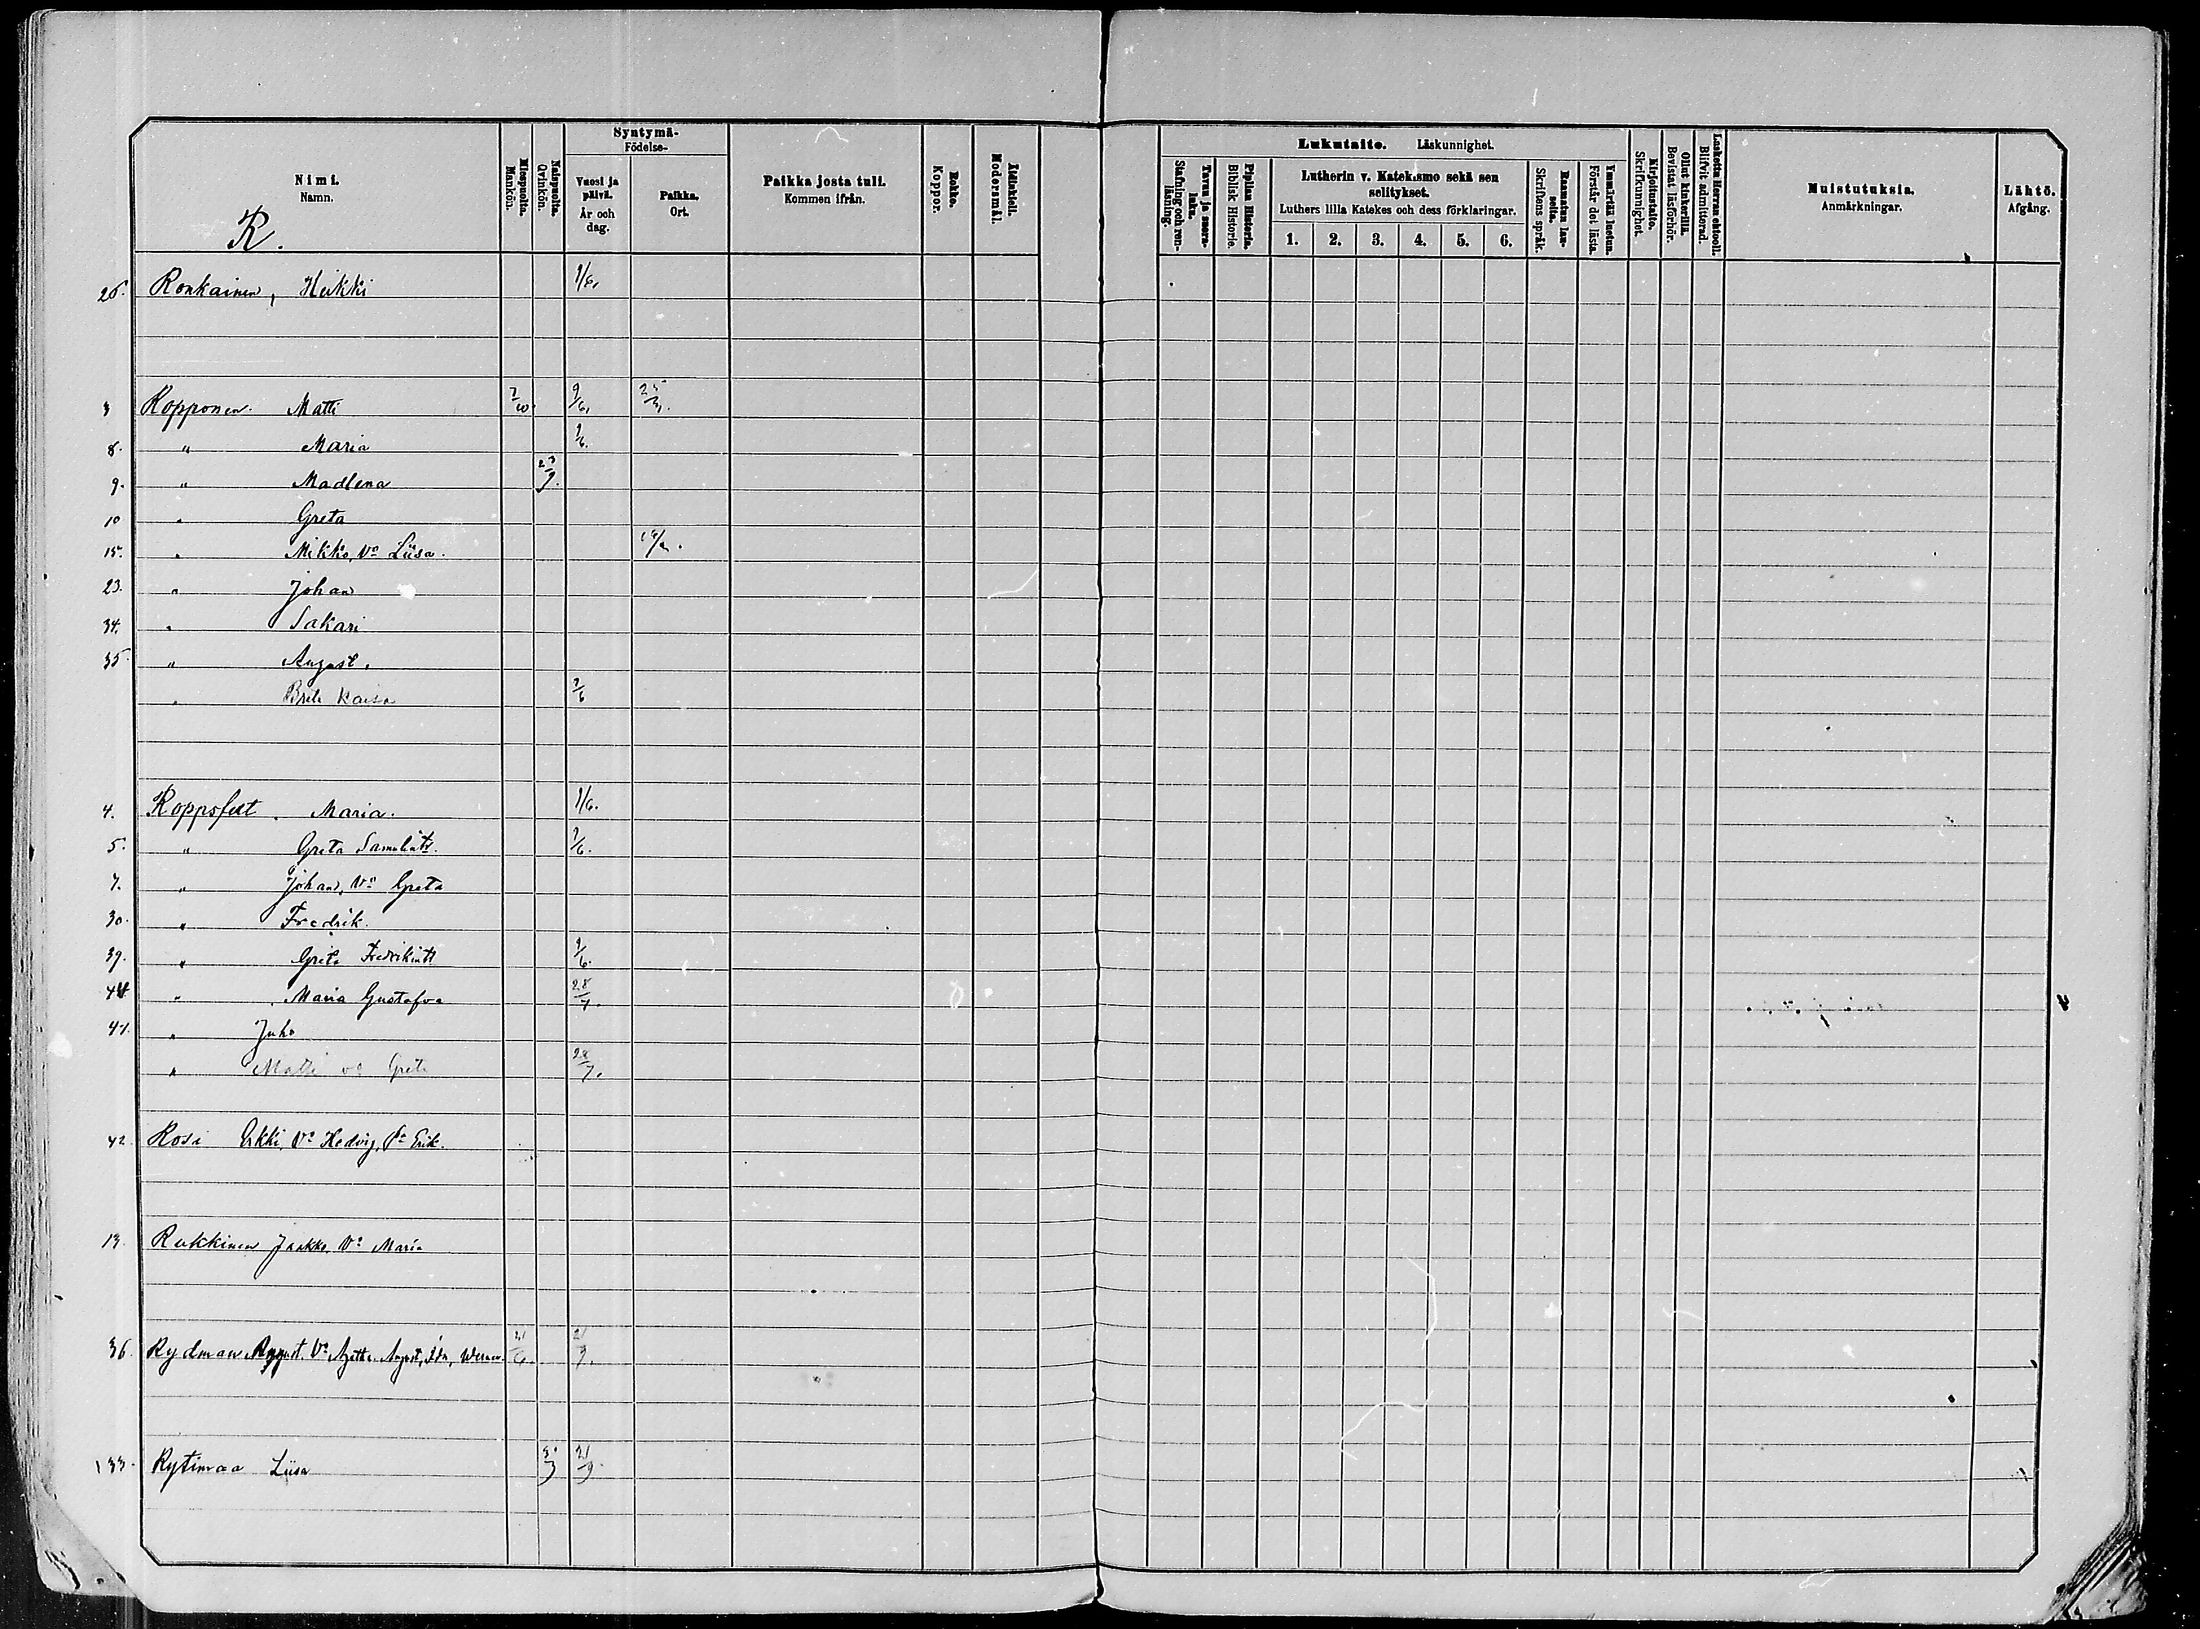 Nimi. Namn.
R.
Miespuolta. Mankön.
Naispuolta. Qvinkön.
Syntymä- Födelse-
Vuosi ja päivä. År och dag.
Paikka. Ort.
Paikka josta tuli. Kommen ifrån.
Rokko. Koppor.
Äidinkieli. Modersmål.
Lukutaito. Läskunnighet.
Tavuu ja suora-luku. Stafning och ren-läsning.
Piplian Historia. Biblisk Historie.
Lutherin v. Katekismo sekä sen selitykset.
Luthers lilla Katekes och dess förklaringar.
1. 2. 3. 4. 5. 6.
Raamatun lau-seita. Skriftens språk.
Ymmärtää luetun. Förstår det lästa.
Kirjoitustaito. Skrifkunnighet.
Ollut kinkerillä. Bevistat läsförhör.
Laskettu Herran ehtoolle. Blifvit admitterad.
Muistutuksia. Anmärkningar.
Lähtö. Afgång.
26. Ronkainen, Heikki 1/6.
3 Ropponen. Matti 7/10. 9/6.
8. " Maria 9/6.
9. " Madlena 23/9.
10 " Greta
15. " Mikko, Vo Liisa.
23. " Johan
34. " Sakari
35 " August.
" Brita Kaisa 9/6
4. Roppsfelt. Maria. 1/6.
5. " Greta 9/6.
7. " Johan, Vo Greta
30. " Fredrik.
39. " Greta 9/6.
" Maria Gustafva 28/7.
41. " Juho
" Matti vo Greta 28/7.
42. Rosi Erkki, Vo Hedvig, Po Erik.
13. Rukkinen Jaakko, Vo Maria
36. Rydman August, Vo August, Ida, Werner. 21/6. 21/9.
33. Rytimaa Liisa 21/9.